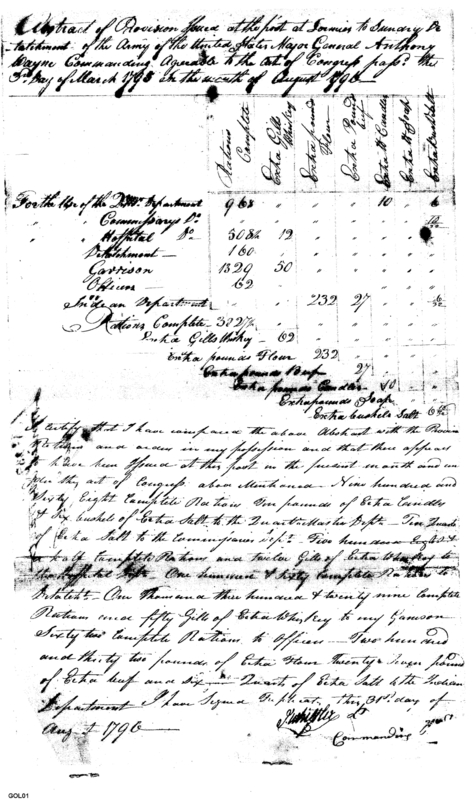 Abstract of Provision Issued at the post at to Sundry De
tatchment of the Army of the United States Major General Anthony
Wayne Commanding Agreeable to the Act of Congress pass'd the
3rd Day of March 1795 In the month of August 1796
Rations Complete
Extra Gills Whiskey
Extra pounds Flour
Extra Pounds beef
Extra lb Candles
Extra lb Soap
Extra bushels Salt
For the Use of the Department 968 " " " 10 " 6
" Commissarys Do
" Hospital Do 308½ 12
Detatchment — 160
Garrison 1329 50
Officers — 62
Indian Department 232 27
Rations Complete 2827½
Extra Gills Whiskey — 62
Extra pounds Flour 232
Extra pounds Beef 27
Extra pounds Candles 10
Extra pounds Soap
Extra bushels Salt
I certify that I have compared the above Abstract with the
and orders in my possession and that there appears
to have been Issued at this post in the present month and un
der the act of Congress above Mentioned Nine hundred and
Sixty Eight Complete Rations Ten pounds of Extra Candles
& Six bushels of Extra Salt to the Quarter Master Dept. Two Quarts
of Extra Salt to the Commissaries Dept. hundred &
a half Complete Rations and twelve Gills of Extra Whiskey to
the Hospital Dept. One hundred & Sixty Complete Rations to
One Thousand three hundred & twenty nine Complete
Rations and fifty Gills of Extra Whiskey to my Garrison
Sixty two Complete Rations to Officers — Two hundred
and thirty two pounds of Extra Flour Twenty Seven pounds
of Extra beef and six — Quarts of Extra Salt to the Indian
Department I have Signed this 31st day of
Augst 1796
Lt
Commanding
GOL01